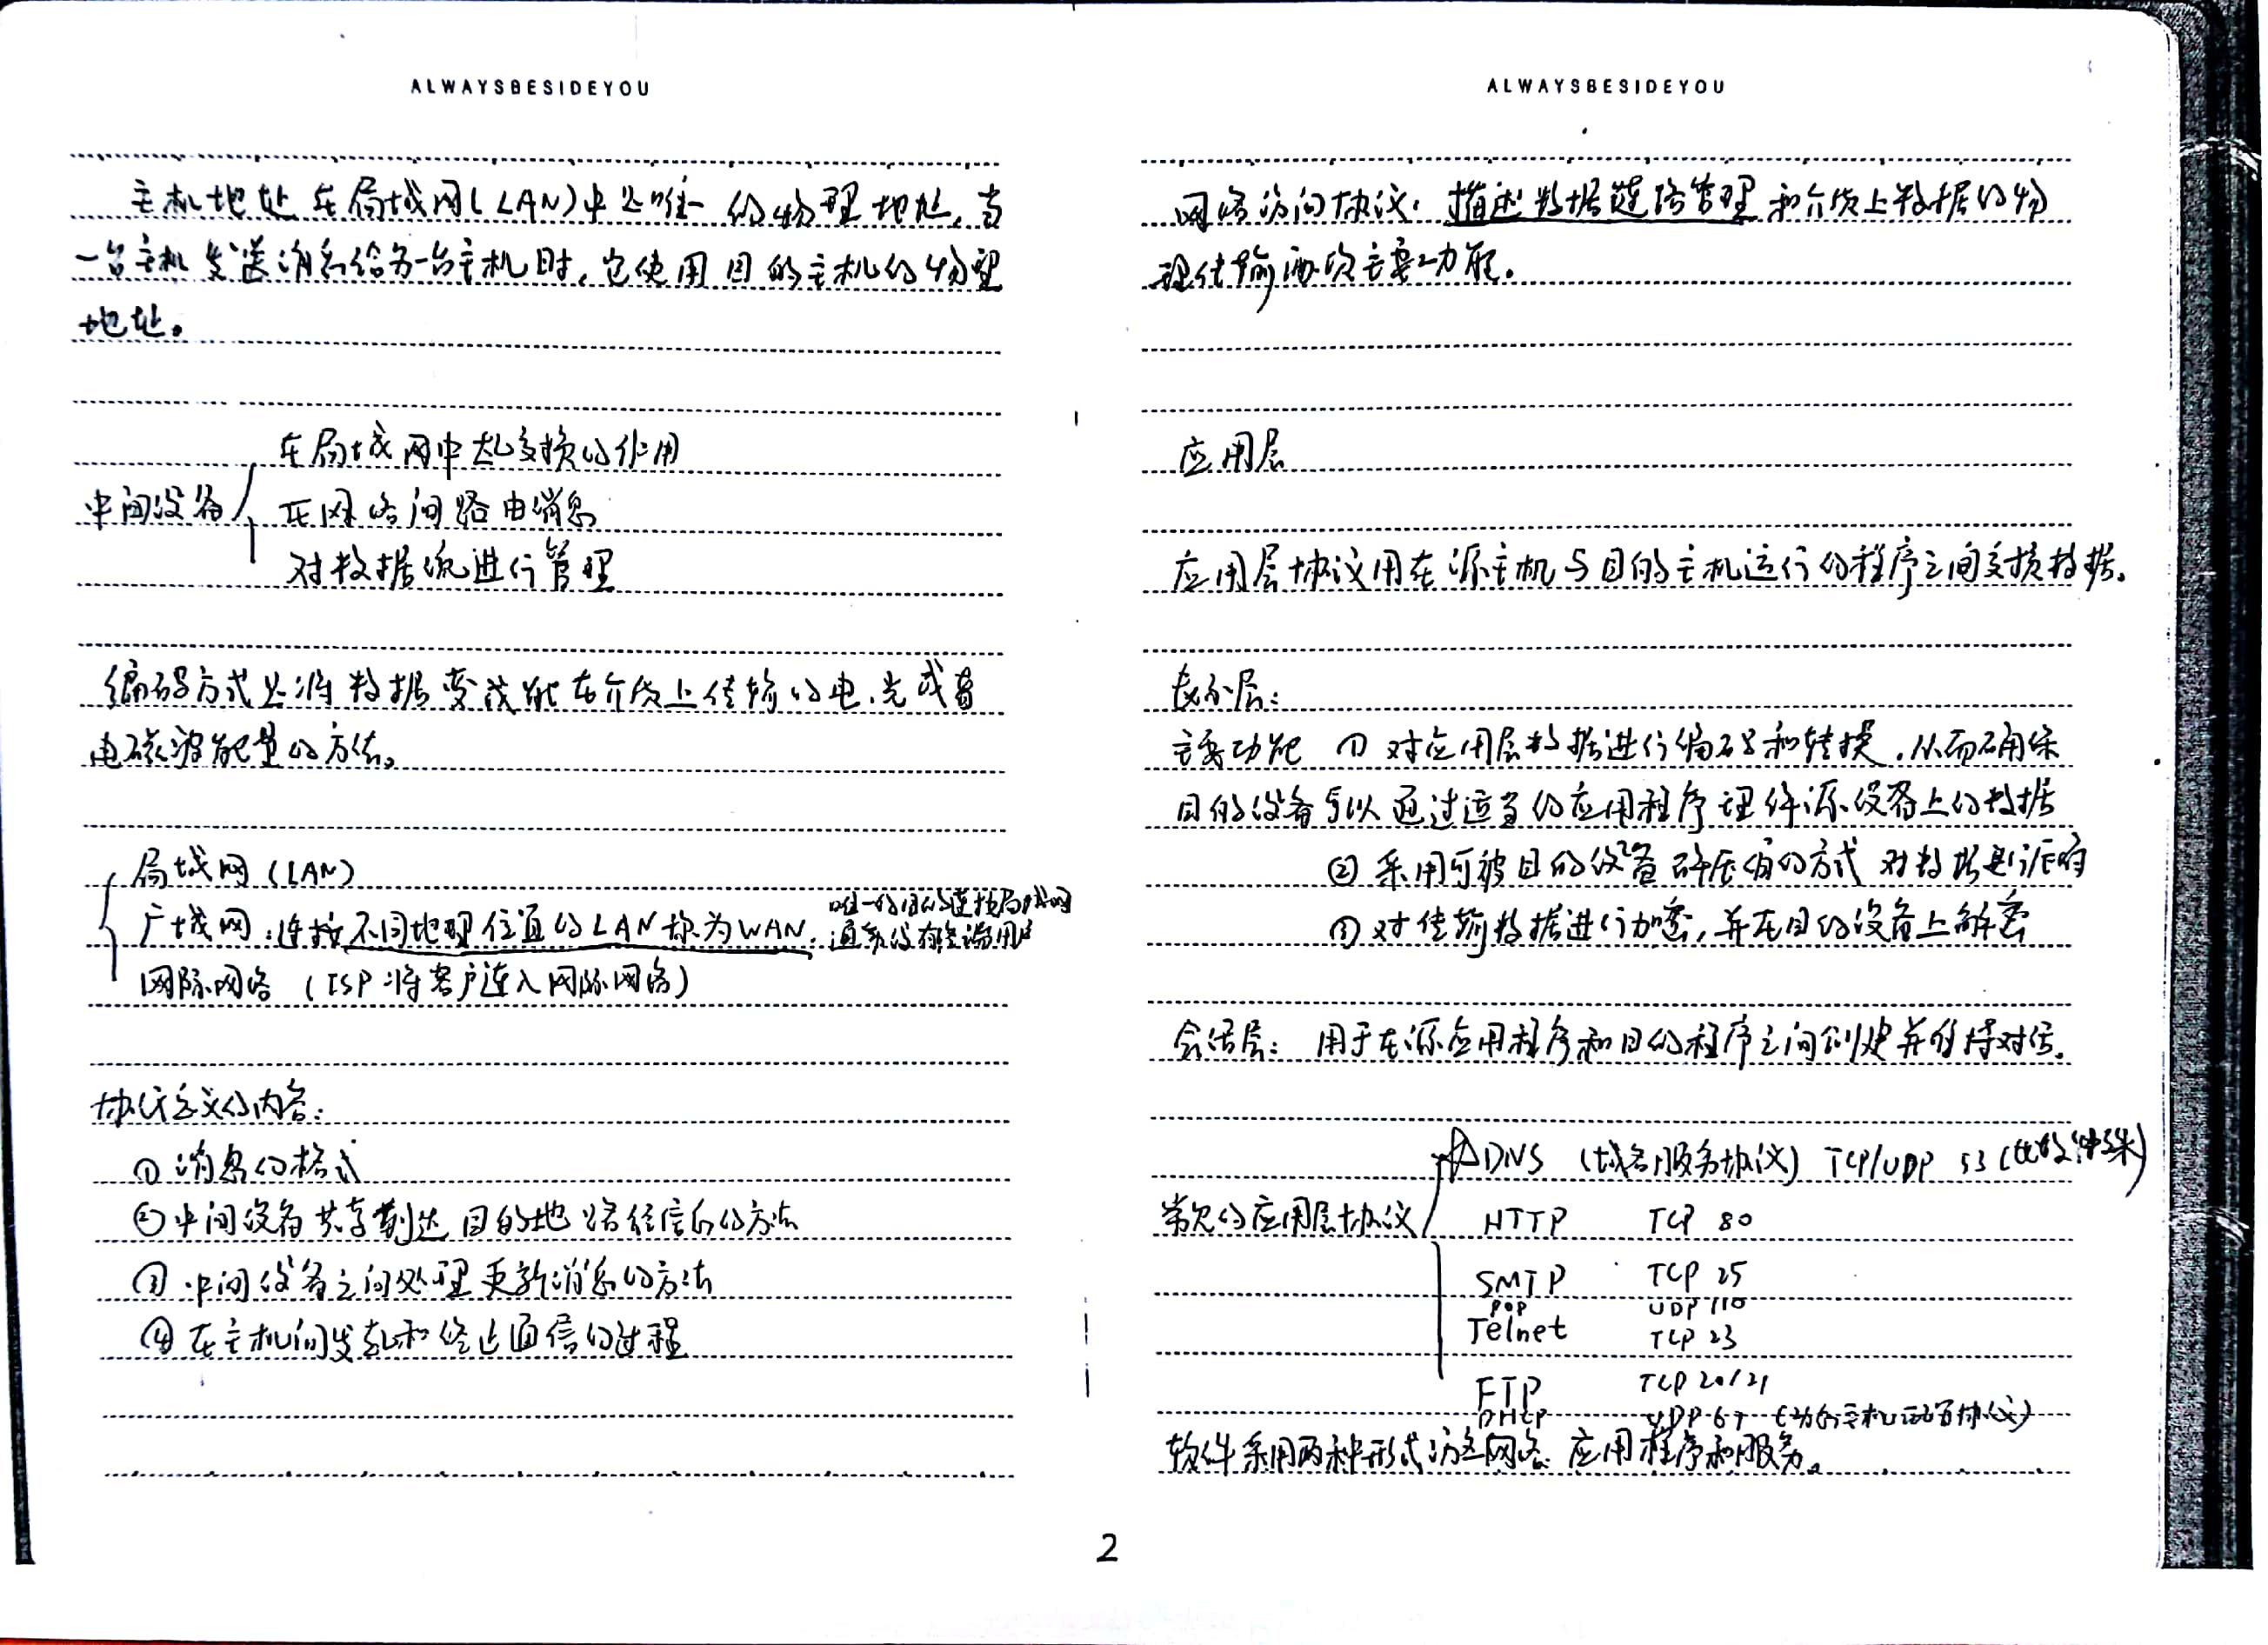 ALWAYSBESIDEYOU
主机地址在局域网(LAN)中是唯一的物理地址,当
一台主机发送消息给另一台主机时,它使用目的主机的物理
地址。
在局域网中起交换的作用
中间设备
在网络间路由消息
对数据流进行管理
编码方式是将数据变成能在介质上传输的电、光或者
电磁波能量的方法。
局域网(LAN)
广域网:连接不同地理位置的LAN称为WAN.
唯一的目的连接局域网
通常没有终端用户
网际网络(ISP将客户连入网际网络)
协议定义的内容:
①消息的格式
②中间设备共享到达目的地路径信息的方法
③中间设备之间处理更新消息的方法
④在主机间发起和终止通信的过程
ALWAYSBESIDEYOU
网络访问协议:描述数据链路管理和介质上数据的物
理传输两项主要功能。
应用层
应用层协议用在源主机与目的主机运行的程序之间交换数据。
表示层:
主要功能 ①对应用层数据进行编码和转换,从而确保
目的设备可以通过适当的应用程序理解源设备上的数据
②采用可被目的设备解压缩的方式对数据进行压缩
③对传输数据进行加密,并在目的设备上解密
会话层: 用于在源应用程序和目的程序之间创建并维持对话.
DNS (域名服务协议) TCP/UDP 53(比较特殊)
常见的应用层协议
HTTP TCP 80
SMTP TCP 25
POP UDP 110
Telnet TCP 23
FTP TCP 20/21
DHCP UDP 67 (动态主机配置协议)
软件采用两种形式访问网络:应用程序和服务。
2